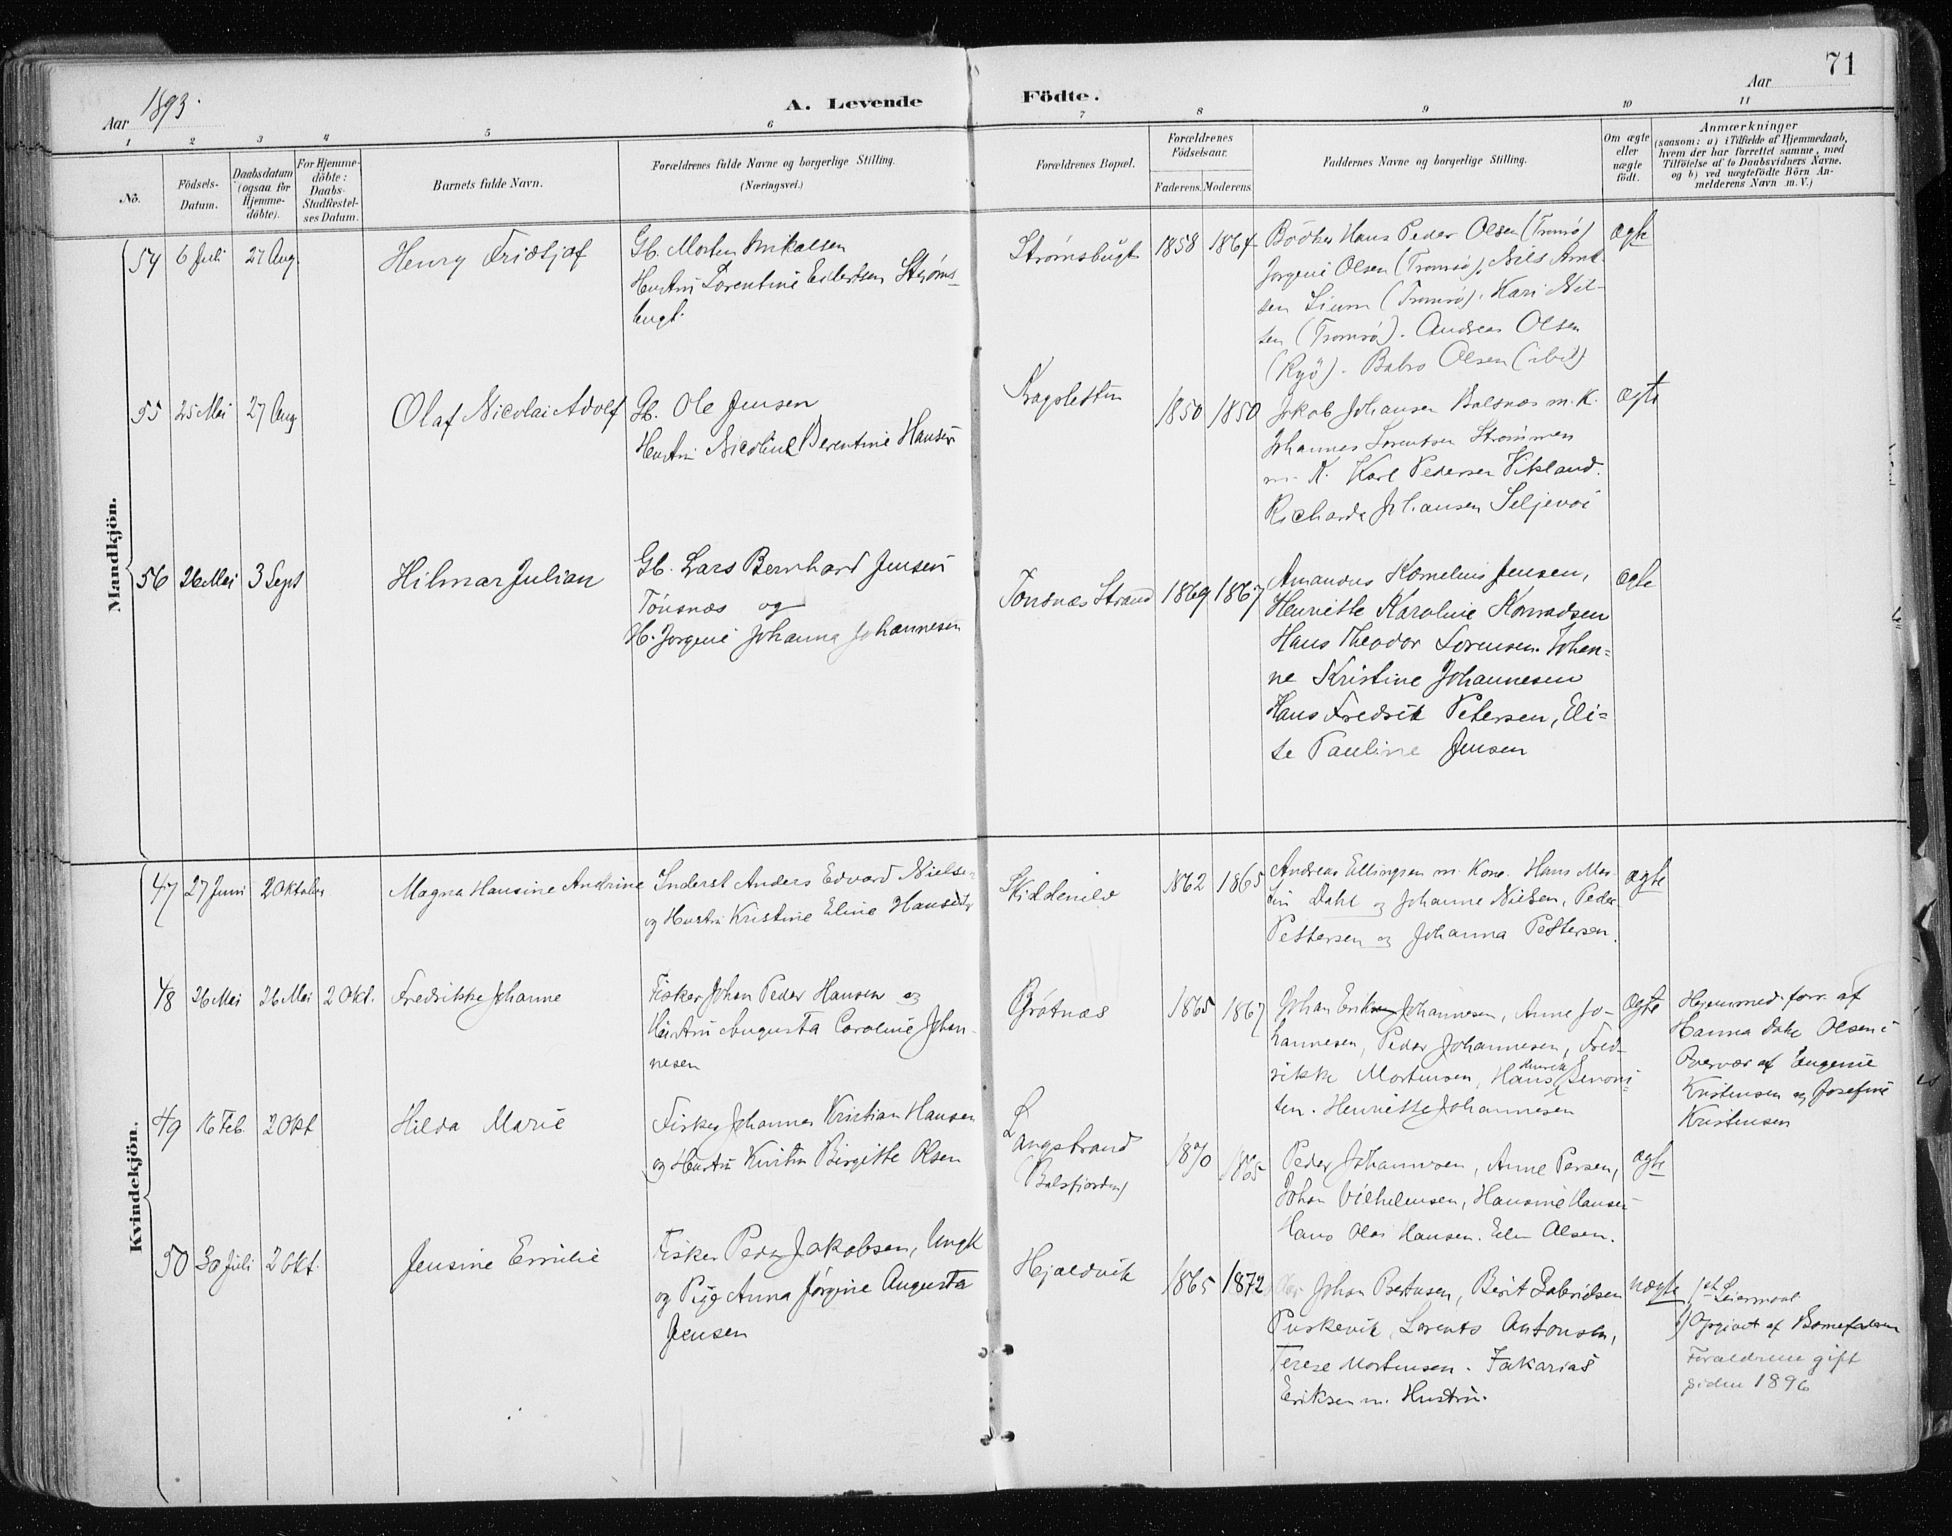 71
Aar 1893.
A. Levende Födte.
Aar
1 2 3 4 5 6 7 8 9 10 11
No.
Födsels-
Datum.
Daabsdatum
(ogsaa for
Hjemme-
döbte).
For Hjemme-
döbte:
Daabs-
Stadfæstel-
ses Datum.
Barnets fulde Navn.
Forældrenes fulde Navne og borgerlige Stilling.
(Næringsvei.)
Forældrenes Bopæl.
Forældrenes
Födselsaar.
Faderens. Moderens.
Faddernes Navne og borgerlige Stilling.
Om ægte
eller
uægte
födt.
Anmærkninger
(saasom: a) i Tilfælde af Hjemmedaab,
hvem der har forrettet samme, med
Tilföielse af to Daabsvidners Navne,
og b) ved uægtefödte Börn An-
melderens Navn m. V.)
Mandkjön.
54 6 Juli 27 Aug.
Henry Fridtjof
Gb. Morten Mikalsen
Hustru Lorentine Eilertsen Strøms-
bugt.
Strømsbugt
1858 1864
Bödker Hans Peder Olsen (Tromsø)
Jorgine Olsen (Tromsø), Nils Arnt-
sen (Tromsø). Kari Nil-
sen (Tromsø). Andreas Olsen
(Ryö). Babro Olsen (ibid)
ægte
55 25 Mai 27 Aug
Olaf Nicolai Adolf
Gb. Ole Jensen
Hustru Nicoline Berentine Hansen
Kragsletten
1850 1850
Jakob Johansen Balsnæs m. K.
Johannes Lorentsen Strømmen
m. K. Karl Pedersen Vikland.
Richarda Johansen Seljevoi
ægte
56 26 Mai 3 Sept
Hilmar Julian
Gb. Lars Bernhard Jensen
Tönsnæs og
H. Jorgine Johanna Johannesen
Tönsnæs Strand
1869 1867
Amandus Kornelius Jensen,
Henriette Karoline Konradsen
Hans Theodor Sorensen. Johan=
ne Kristine Johannesen
Hans Fredrik Petersen, Eli=
se Pauline Jensen
ægte
Kvindekjön.
47 27 Juni 2 Oktober
Magna Hansine Andrine
Inderst Anders Edvard Nielsen
og Hustru Kristine Eline Hansdtr
Skiddenelv
1862 1865
Andreas Ellingsen m. Kone. Hans Mar-
tin Dahl og Johanne Nielsen, Peder
Pettersen og Johanna Pettersen.
ægte
48 26 Mai 26 Mai 2 Okt.
Fredrikke Johanne
Fisker Johan Peder Hansen og
Hustru Augusta Caroline Johan-
nesen
Grötnæs
1865 1867
Johan Erik Johannesen, Anne Jo-
hannesen, Peder Johannesen, Fred-
rikke Mortensen, Hans Simon-
sen. Henriette Johannesen
ægte
Hjemmed. forr. af
Hanna Dahl Olsen i
Overvær af Eugenie
Kristensen og Josefine
Kristensen
49 16 Feb. 2 Okt
Hilda Marie
Fisker Johannes Kristian Hansen
og Hustru Kirstin Birgitte Olsen
Langstrand
(Balsfjorden)
1870 1865
Peder Johannesen, Anne Persen,
Johan Vilhelmsen, Hansine Hansen
Hans Olai Hansen. Elen Olsen.
ægte
50 30 Juli 2 Okt.
Jensine Emilie
Fisker Peder Jakobsen, Ungk
og Pige Anna Jørgine Augusta
Jensen
Hjaldvik
1865 1872
Johan Bertusen, Berit Gabrielsen
Purkevik, Lorents Antonsen,
Terese Mortensen. Zakarias
Eriksen m. Hustru.
uægte
1ste Leiermaal
Opgivet af Barnefaderen
Forældrene gift
siden 1896